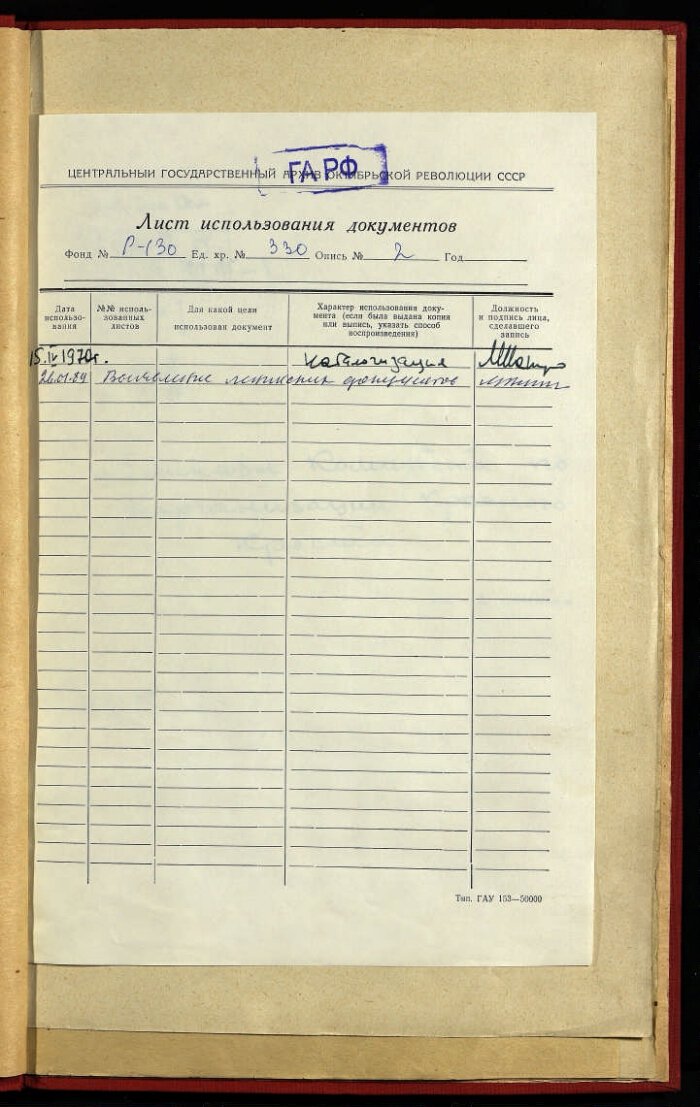 ГА РФ
ЦЕНТРАЛЬНЫЙ ГОСУДАРСТВЕННЫЙ АРХИВ ОКТЯБРЬСКОЙ РЕВОЛЮЦИИ СССР
Лист использования документов
Фонд № Р-130 Ед. хр. № 330 Опись № 2 Год
Дата использо-вания
№№ исполь-зованных листов
Для какой цели использован документ
Характер использования доку-мента (если была выдана копия или выпись, указать способ воспроизведения)
Должность и подпись лица, сделавшего запись
15.IV 1970г. каталогизация
26.01.89 Выявление ленинских документов
Тип. ГАУ 153—50000